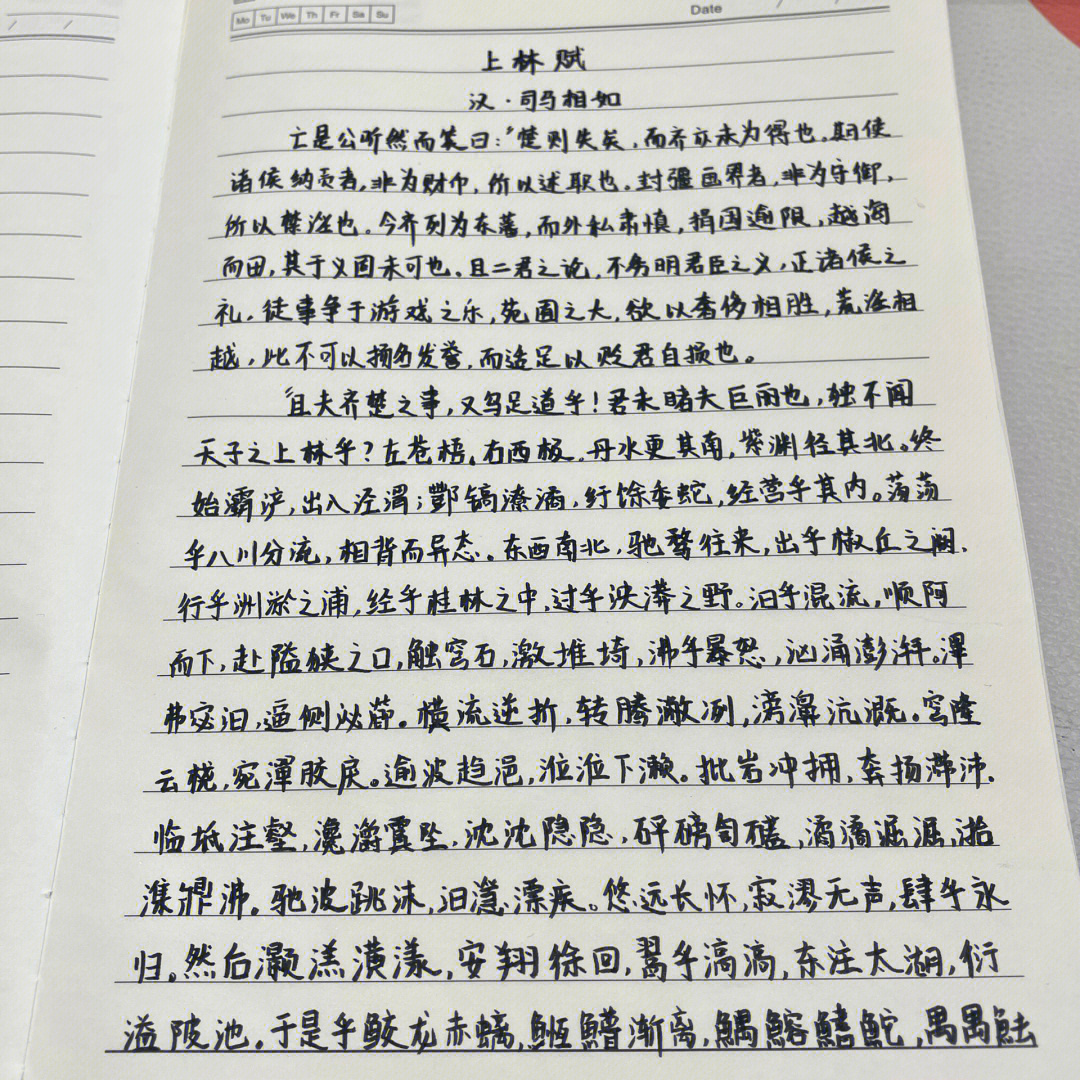 Mo Tu We Th Fr Sa Su
Date
上林赋
汉·司马相如
亡是公听然而笑曰：“楚则失矣，而齐亦未为得也。夫使
诸侯纳贡者，非为财币，所以述职也。封疆画界者，非为守御，
所以禁淫也。今齐列为东藩，而外私肃慎，捐国逾限，越海
而田，其于义固未可也。且二君之论，不务明君臣之义，正诸侯之
礼，徒事争于游戏之乐，苑囿之大，欲以奢侈相胜，荒淫相
越，此不可以扬名发誉，而适足以贬君自损也。
“且夫齐楚之事，又乌足道乎！君未睹夫巨丽也，独不闻
天子之上林乎？左苍梧，右西极，丹水更其南，紫渊径其北。终
始灞浐，出入泾渭；酆镐潦潏，纡馀委蛇，经营乎其内。荡荡
乎八川分流，相背而异态。东西南北，驰骛往来，出乎椒丘之阙，
行乎洲淤之浦，经乎桂林之中，过乎泱漭之野。汩乎混流，顺阿
而下，赴隘狭之口，触穹石，激堆埼，沸乎暴怒，汹涌澎湃。滭
弗宓汩，逼侧泌瀄。横流逆折，转腾潎洌，滂濞沆溉。穹隆
云桡，宛潬胶戾。逾波趋浥，涖涖下濑。批岩冲拥，奔扬滞沛。
临坻注壑，瀺灂霣坠，沈沈隐隐，砰磅訇礚，潏潏淈淈，湁
潗鼎沸。驰波跳沫，汩㴔漂疾。悠远长怀，寂漻无声，肆乎永
归。然后灏溔潢漾，安翔徐回，翯乎滈滈，东注太湖，衍
溢陂池。于是乎鲛龙赤螭，䱎䲛渐离，鰅鰫鳍鮀，禺禺魼